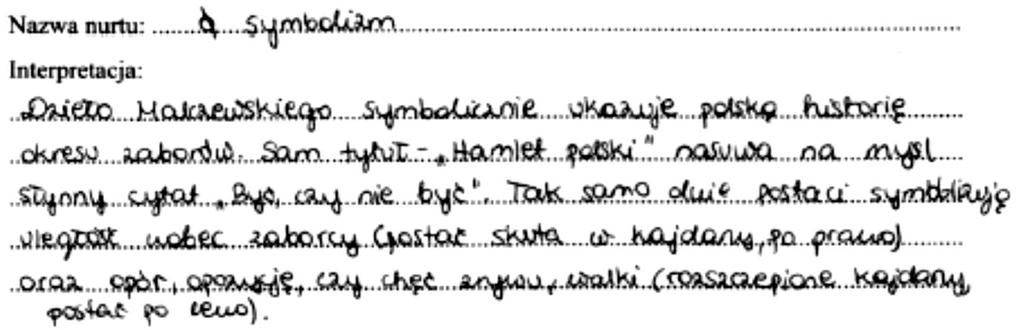 Nazwa nurtu: symbolizm
Interpretacja:
Dzieło Malczewskiego symbolicznie ukazuje polską historię
okresu zaborów. Sam tytuł - „Hamlet polski" nasuwa na myśl
słynny cytat „Być, czy nie być". Tak samo dwie postaci symbolizują
uległość wobec zaborcy (postać skuta w kajdany, po prawo)
oraz opór, opozycję, czy chęć zrywu, walki (rozszczepione kajdany
postać po lewo).